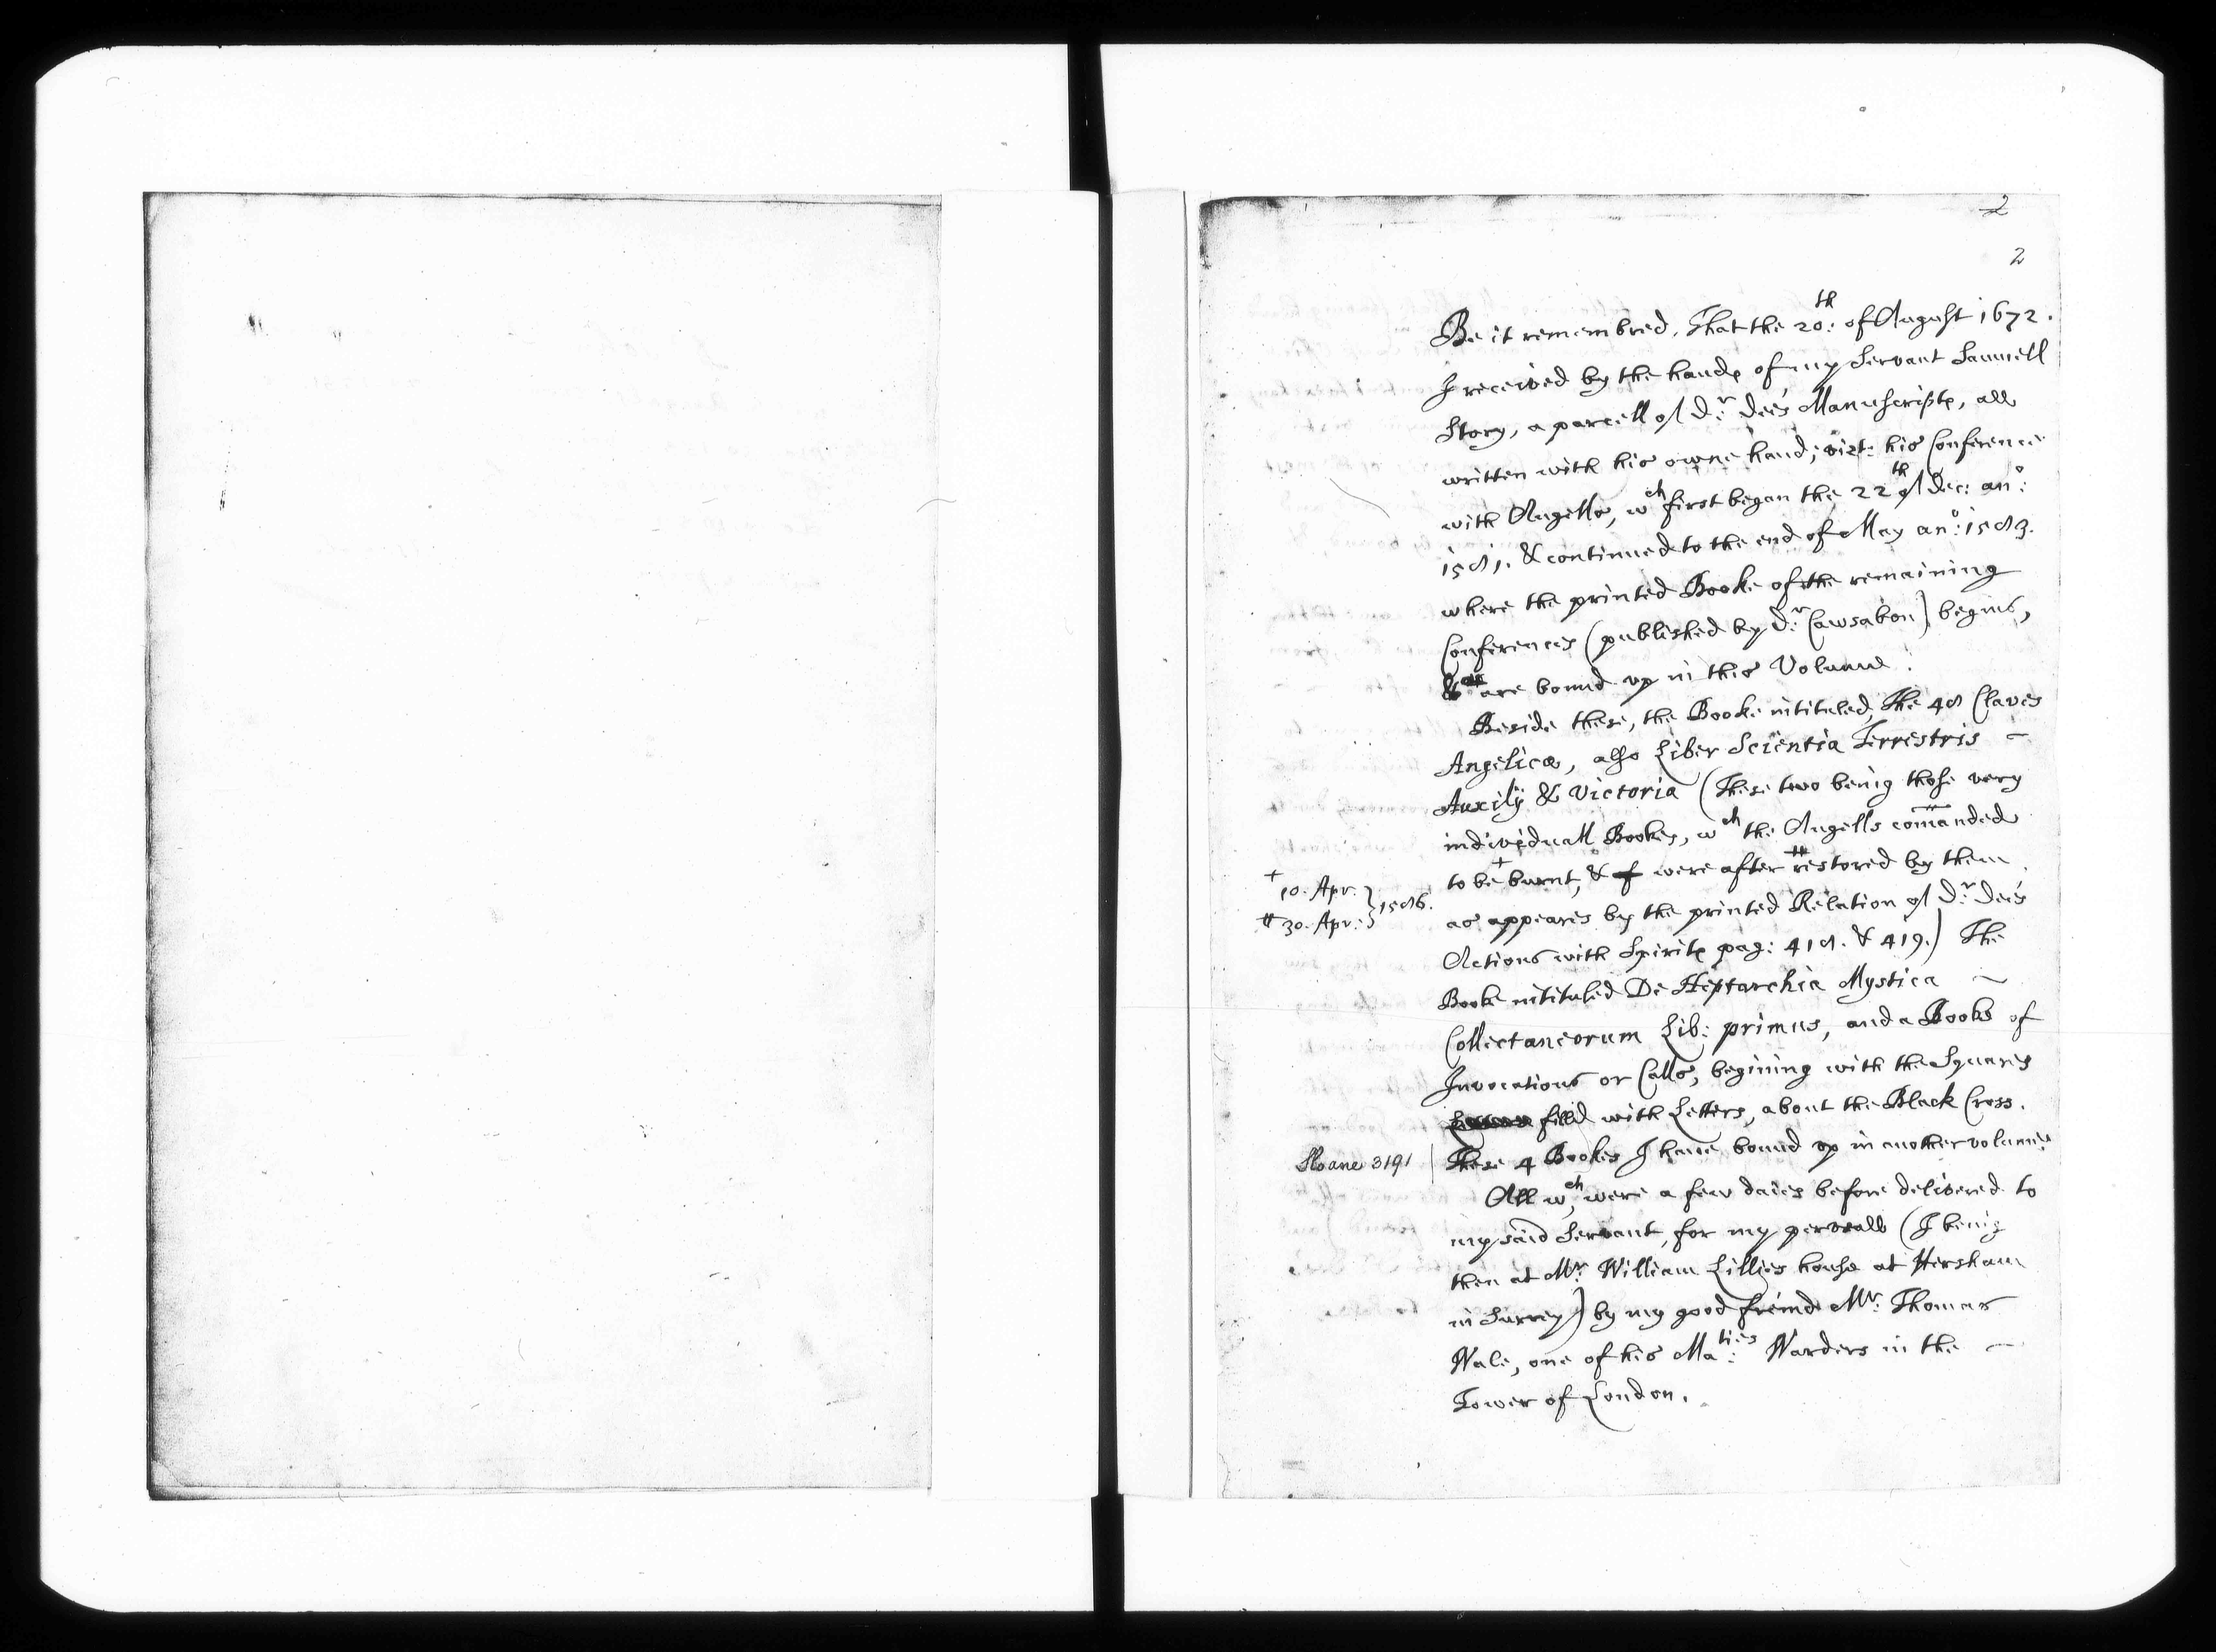 2
2
Be it remembred, That the 20:th of August 1672.
I received by the hands of my Servant Samuell
Story, a parcell of Dr: Dee's Manuscripts, all
written with his owne hand; vizt: his Conference
with Angells, wch first began the 22th of Dec: ano:
1581. & continued to the end of May ano: 1583.
where the printed Booke of the remaining
Conferences (published by Dr: Cawsabon) begins,
& are bound up in this Volume.
Beside these, the Booke intituled, The 48 Claves
Angelicæ, also Liber Scientia Terrestris ~
Auxilij & Victoria (These two being those very
individuall Bookes, wch the Angells com̄anded
to be + burnt, & were after # restored by them
+ 10. Apr. } 1586.
# 30. Apr: }
as appeares by the printed Relation of Dr: Dee's
Actions with Spirits pag: 418. & 419.) The
Booke intituled De Heptarchia Mystica ~
Collectaneorum Lib: primus, and a Booke of
Invocations or Calls, begining with the Squares
filld with Letters, about the Black Cross.
Sloane 3191
These 4 Bookes I have bound up in another volume.
All wch were a few daies before delivered to
my said Servant, for my perusall (I being
then at Mr: William Lillies house at Hersham
in Surrey) by my good freind Mr: Thomas
Wale, one of his Maties: Warders in the ~
Tower of London.